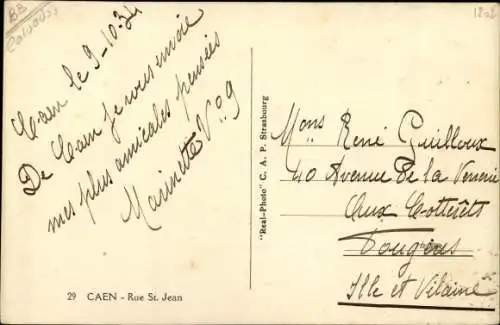 BB
Calvados
1202
Caen le 9-10-34
De Caen je vous envoie
mes plus amicales pensées
Marinette V° 9
"Real-Photo" C. A. P. Strasbourg
Mons René Guilloux
40 Avenue de la Verrerie
Aux Cotterêts
Fougères
Ille et Vilaine
29 CAEN - Rue St. Jean